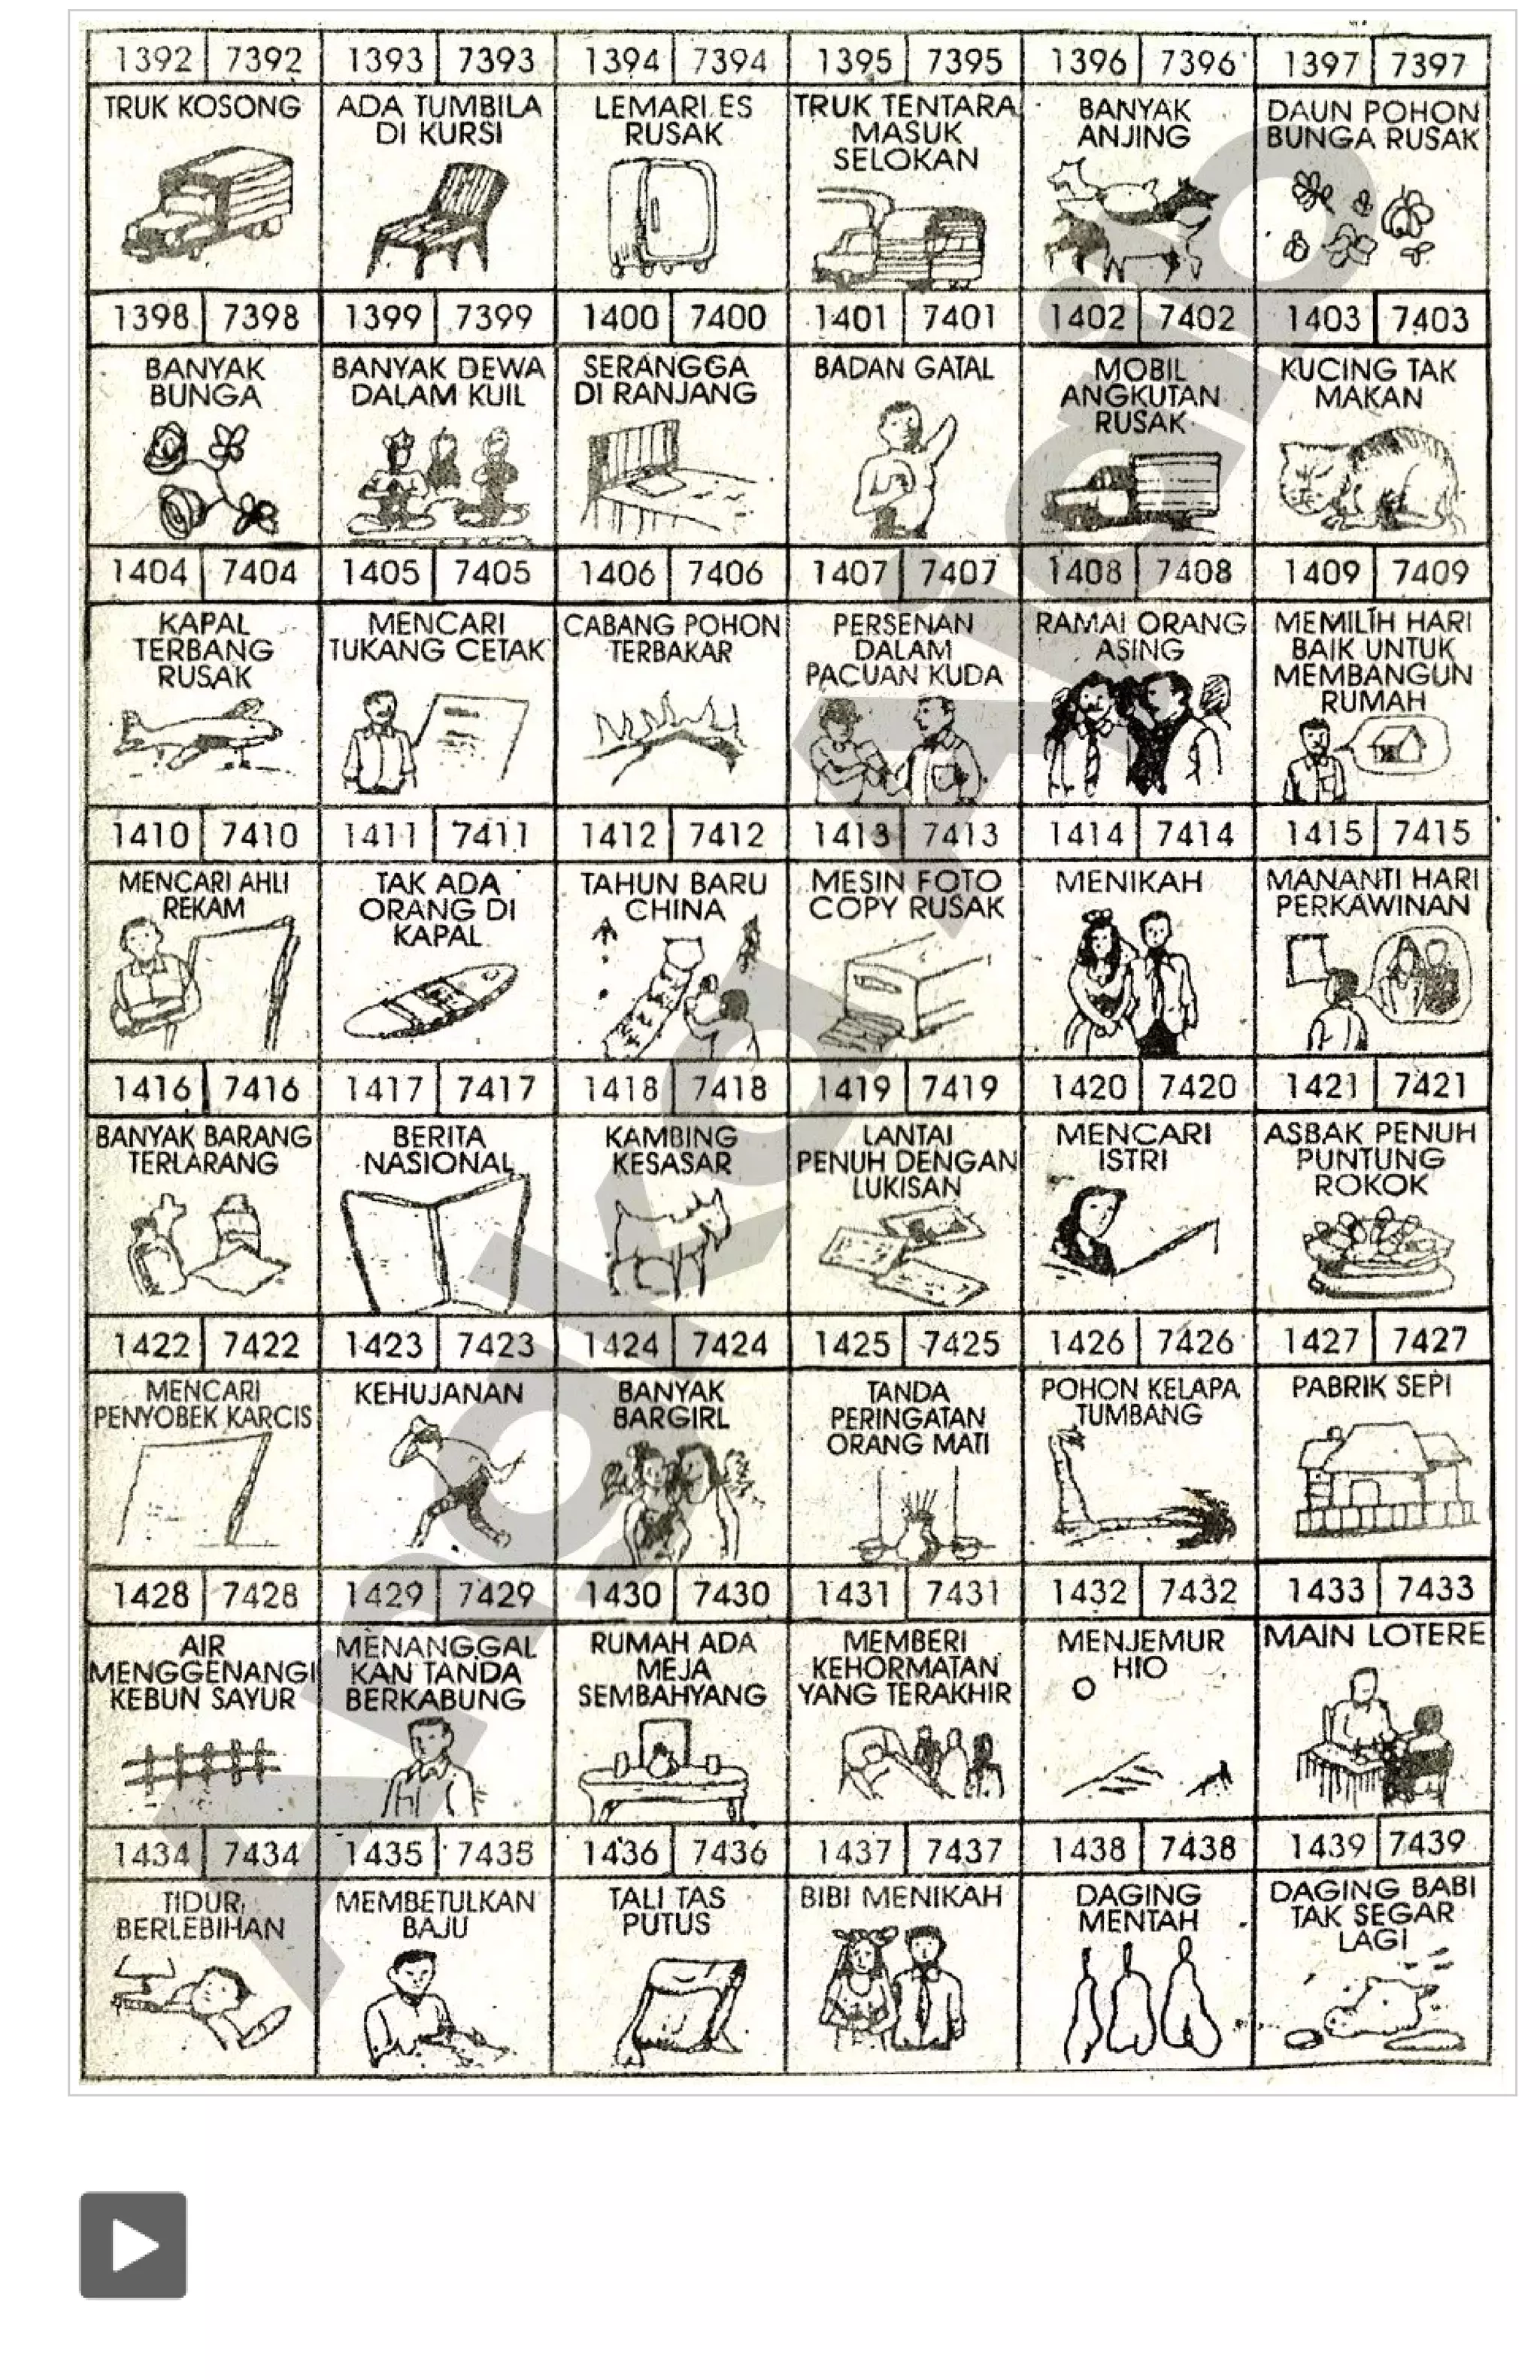 1392 7392 1393 7393 1394 7394 1395 7395 1396 7396 1397 7397
TRUK KOSONG
ADA TUMBILA
DI KURSI
LEMARI ES
RUSAK
TRUK TENTARA
MASUK
SELOKAN
BANYAK
ANJING
DAUN POHON
BUNGA RUSAK
1398 7398 1399 7399 1400 7400 1401 7401 1402 7402 1403 7403
BANYAK
BUNGA
BANYAK DEWA
DALAM KUIL
SERANGGA
DI RANJANG
BADAN GATAL
MOBIL
ANGKUTAN
RUSAK
KUCING TAK
MAKAN
1404 7404 1405 7405 1406 7406 1407 7407 1408 7408 1409 7409
KAPAL
TERBANG
RUSAK
MENCARI
TUKANG CETAK
CABANG POHON
TERBAKAR
PERSENAN
DALAM
PACUAN KUDA
RAMAI ORANG
ASING
MEMILIH HARI
BAIK UNTUK
MEMBANGUN
RUMAH
1410 7410 1411 7411 1412 7412 1413 7413 1414 7414 1415 7415
MENCARI AHLI
REKAM
TAK ADA
ORANG DI
KAPAL
TAHUN BARU
CHINA
MESIN FOTO
COPY RUSAK
MENIKAH
MANANTI HARI
PERKAWINAN
1416 7416 1417 7417 1418 7418 1419 7419 1420 7420 1421 7421
BANYAK BARANG
TERLARANG
BERITA
NASIONAL
KAMBING
KESASAR
LANTAI
PENUH DENGAN
LUKISAN
MENCARI
ISTRI
ASBAK PENUH
PUNTUNG
ROKOK
1422 7422 1423 7423 1424 7424 1425 7425 1426 7426 1427 7427
MENCARI
PENYOBEK KARCIS
KEHUJANAN
BANYAK
BARGIRL
TANDA
PERINGATAN
ORANG MATI
POHON KELAPA
TUMBANG
PABRIK SEPI
1428 7428 1429 7429 1430 7430 1431 7431 1432 7432 1433 7433
AIR
MENGGENANGI
KEBUN SAYUR
MENANGGAL
KAN TANDA
BERKABUNG
RUMAH ADA
MEJA
SEMBAHYANG
MEMBERI
KEHORMATAN
YANG TERAKHIR
MENJEMUR
HIO
MAIN LOTERE
1434 7434 1435 7435 1436 7436 1437 7437 1438 7438 1439 7439
TIDUR
BERLEBIHAN
MEMBETULKAN
BAJU
TALI TAS
PUTUS
BIBI MENIKAH
DAGING
MENTAH
DAGING BABI
TAK SEGAR
LAGI